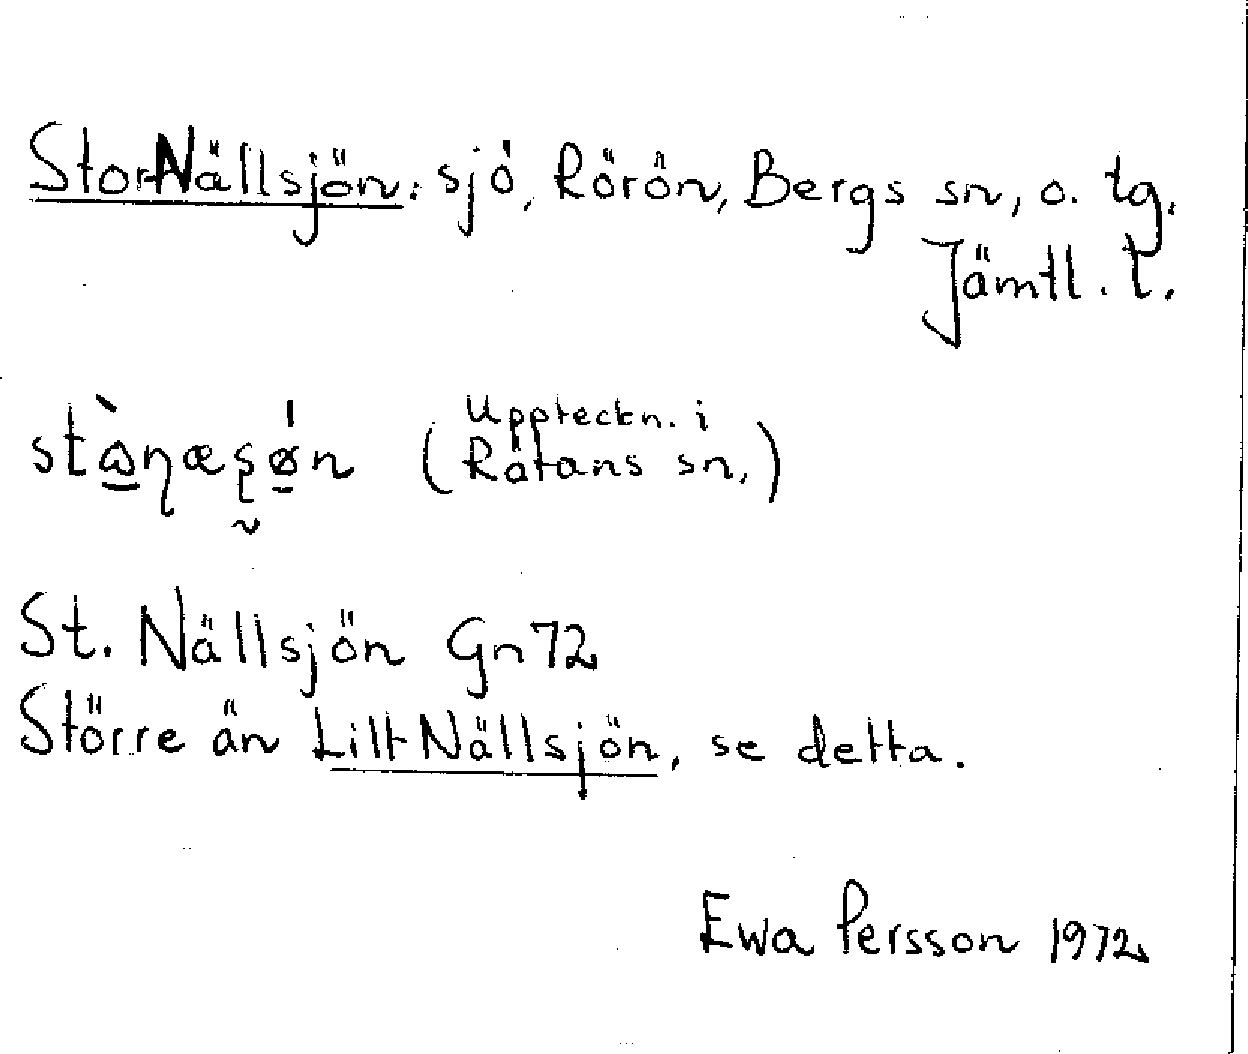 StorNällsjön: sjö, Rörön, Bergs sn, o. tg.
Jämtl. l.
(Uppteckn. i
Rätans sn.)
St. Nällsjön Gn 72
Större än LiltNällsjön, se detta.
Ewa Persson 1972